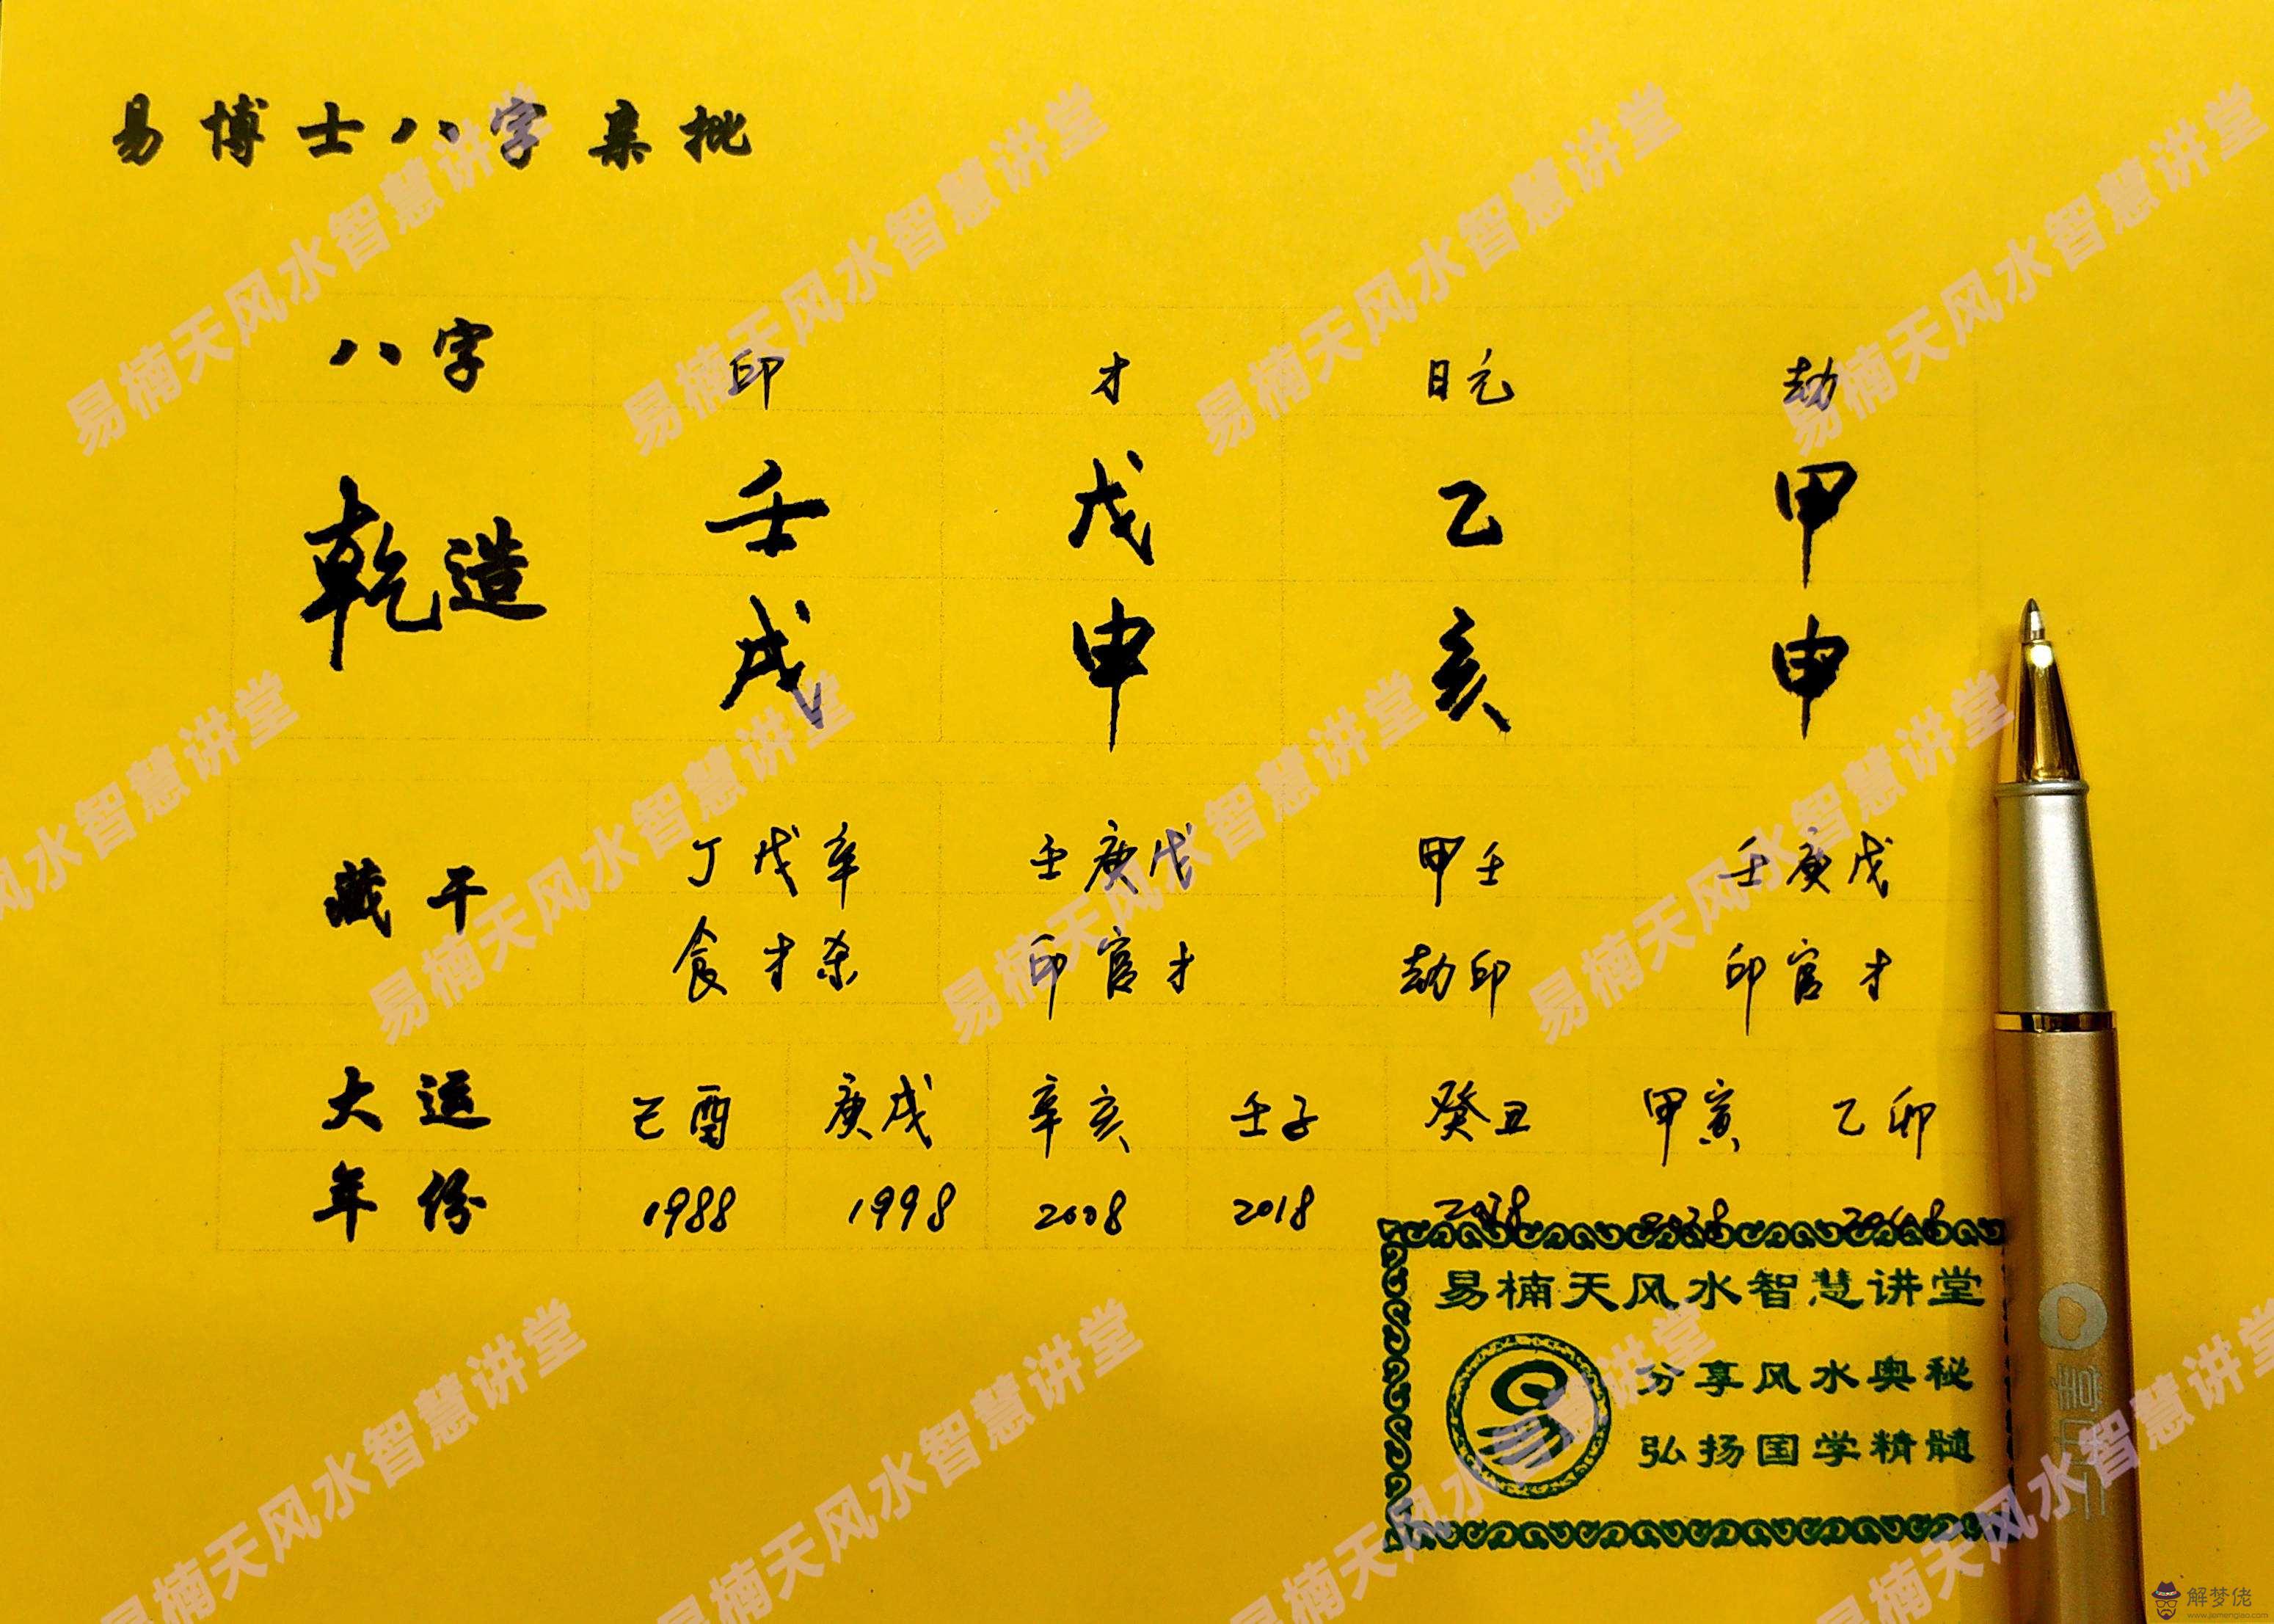 易博士八字亲批
八字 印 才 日元 劫
乾造 壬 戊 乙 甲
戌 申 亥 申
藏干 丁戊辛 壬庚戊 甲壬 壬庚戊
食才杀 印官才 劫印 印官才
大运 己酉 庚戌 辛亥 壬子 癸丑 甲寅 乙卯
年份 1988 1998 2008 2018
易楠天风水智慧讲堂
分享风水奥秘
弘扬国学精髓
易楠天风水智慧讲堂
解梦佬
www.jiemenglao.com